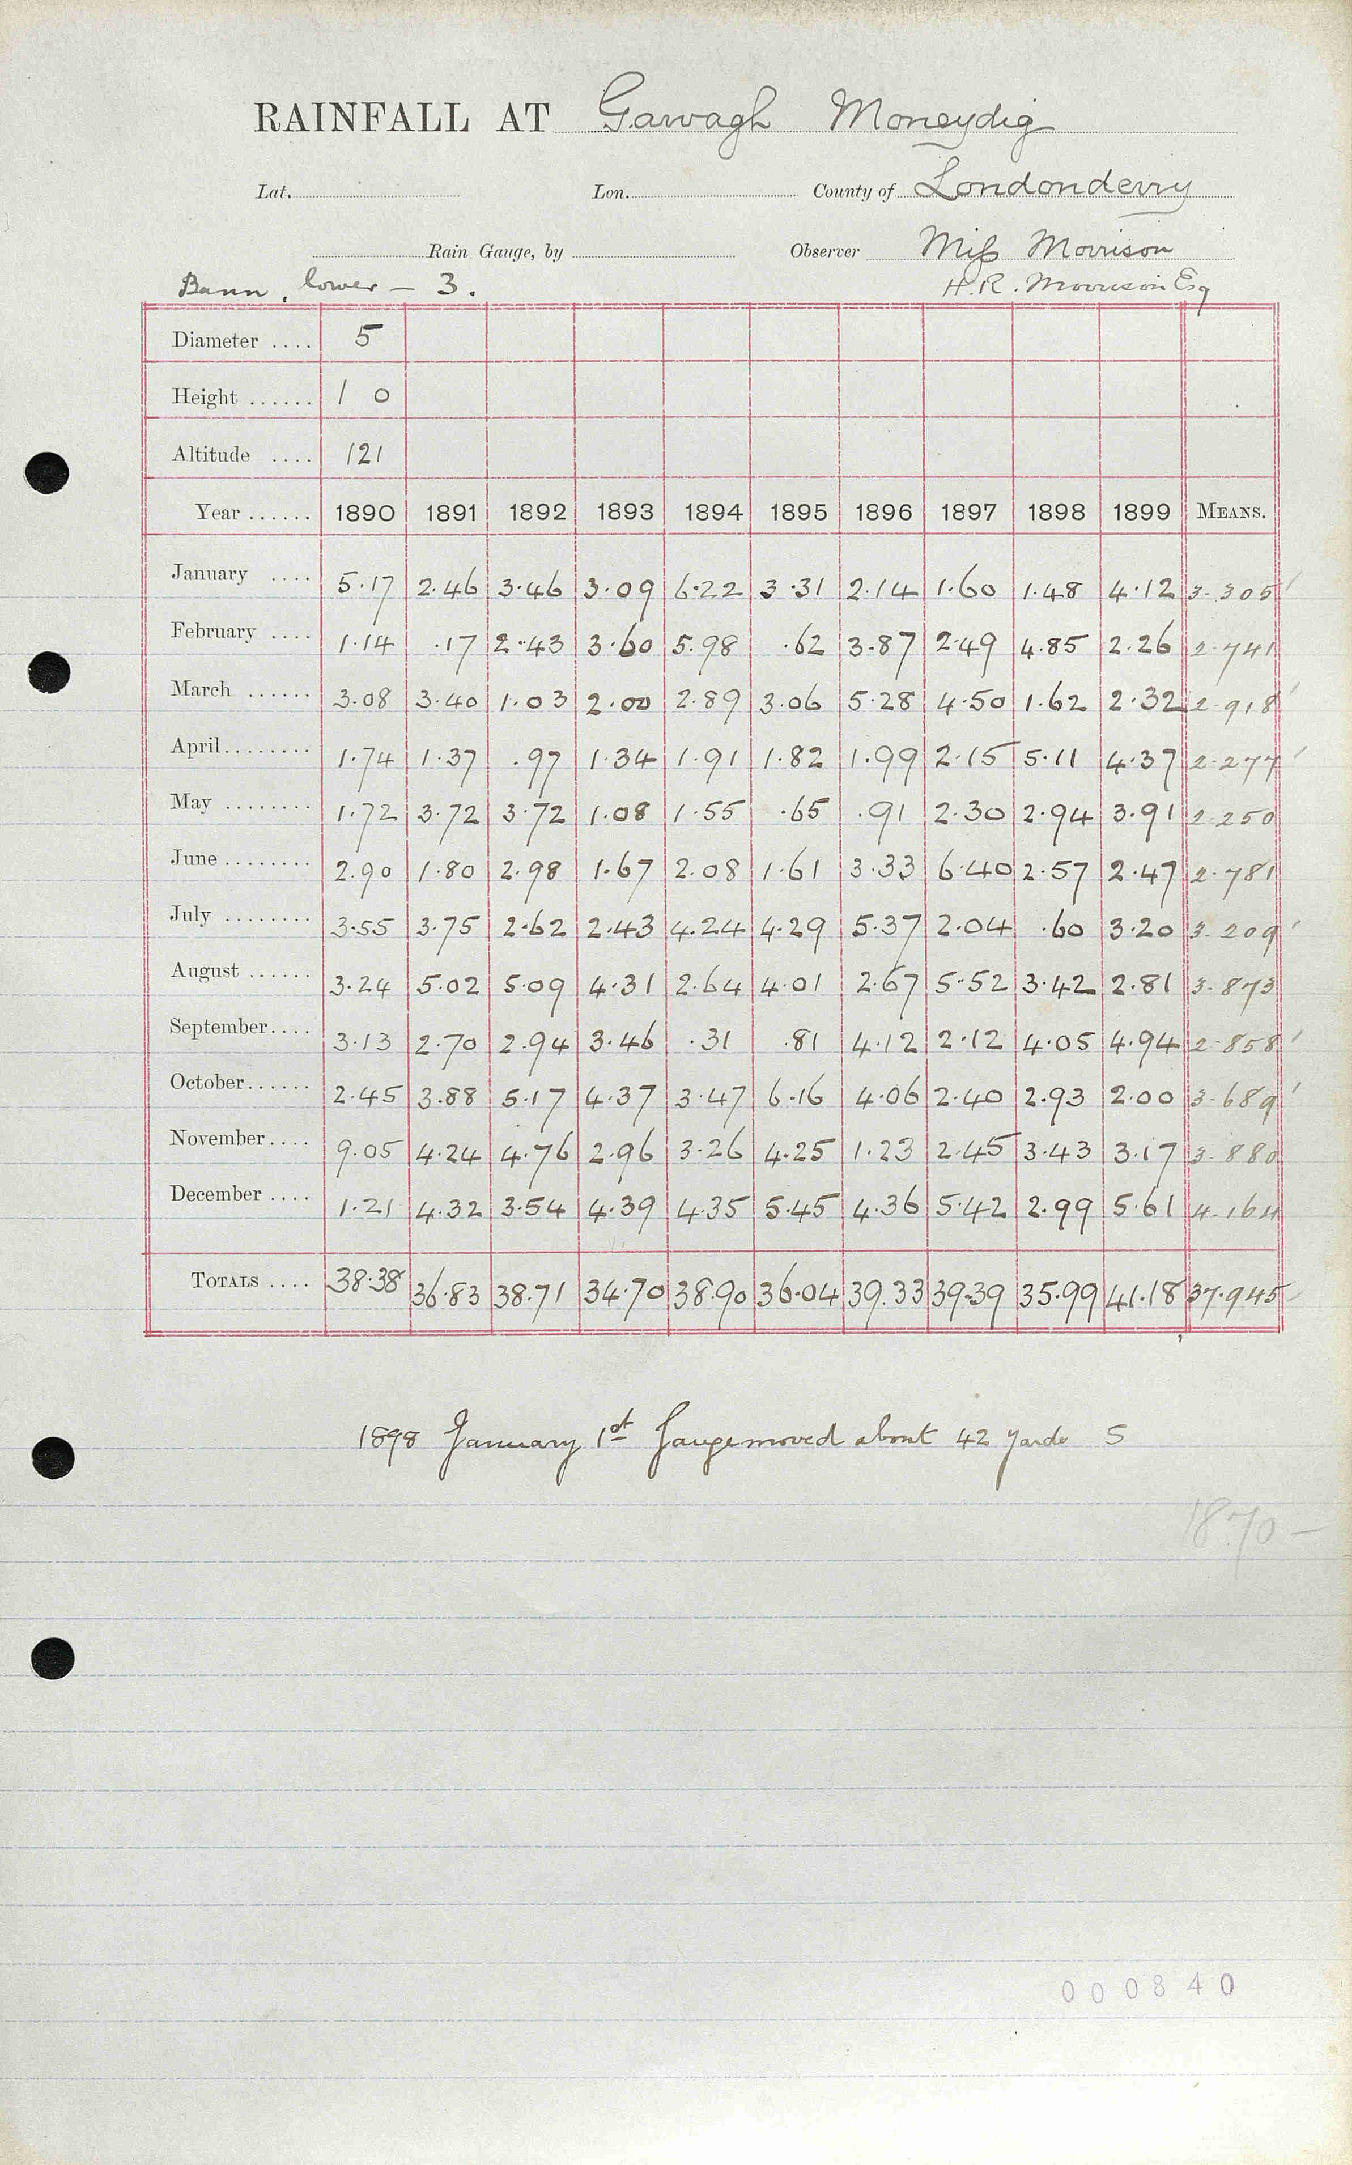 RAINFALL AT Garvagh Moneydig
Lat. Lon. County of Londonderry
Rain Gauge, by Observer Miss Morrison
Bann, lower – 3. H.R. Morrison Esq
Diameter .... 5
Height ...... 1 0
Altitude .... 121
Year ...... 1890 1891 1892 1893 1894 1895 1896 1897 1898 1899 MEANS.
January .... 5.17 2.46 3.46 3.09 6.22 3.31 2.14 1.60 1.48 4.12 3.305
February .... 1.14 .17 2.43 3.60 5.98 .62 3.87 2.49 4.85 2.26 2.741
March ...... 3.08 3.40 1.03 2.00 2.89 3.06 5.28 4.50 1.62 2.32 2.918
April........ 1.74 1.37 .97 1.34 1.91 1.82 1.99 2.15 5.11 4.37 2.277
May ........ 1.72 3.72 3.72 1.08 1.55 .65 .91 2.30 2.94 3.91 2.250
June ........ 2.90 1.80 2.98 1.67 2.08 1.61 3.33 6.40 2.57 2.47 2.781
July ........ 3.55 3.75 2.62 2.43 4.24 4.29 5.37 2.04 .60 3.20 3.209
August ...... 3.24 5.02 5.09 4.31 2.64 4.01 2.67 5.52 3.42 2.81 3.873
September.... 3.13 2.70 2.94 3.46 .31 .81 4.12 2.12 4.05 4.94 2.858
October...... 2.45 3.88 5.17 4.37 3.47 6.16 4.06 2.40 2.93 2.00 3.689
November.... 9.05 4.24 4.76 2.96 3.26 4.25 1.23 2.45 3.43 3.17 3.880
December .... 1.21 4.32 3.54 4.39 4.35 5.45 4.36 5.42 2.99 5.61 4.164
TOTALS .... 38.38 36.83 38.71 34.70 38.90 36.04 39.33 39.39 35.99 41.18 37.945
1898 January 1st Gauge moved about 42 yards S
1870 –
000840